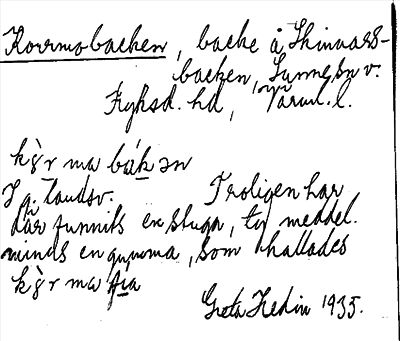 Korrmobacken, backe å Skinnars-
backen, Sunne sn v.
Fryksd. hd, Värml. l.
kɔ̀r ma bákən
I g. landsv. Troligen har
där funnits en stuga, ty meddel.
minns en gumma, som kallades
kɔ̀r ma
Greta Hedin 1935.